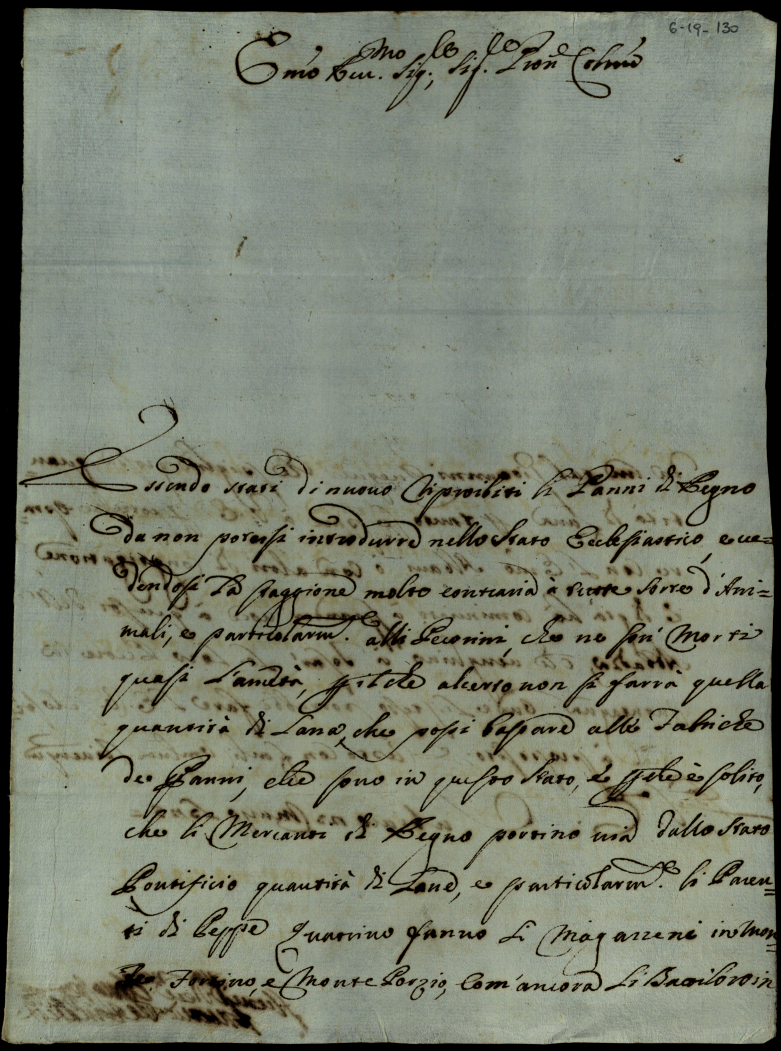 6-19-130
Em̃o Rev.mo Sig.re, Sig.re Pron.e Col.mo
Essendo stati di nuovo riproibiti li Panni di Regno
da non potersi introdurre nello Stato Eccl̃esiastico, e ve=
dendosi la staggione molto contraria à tutte sorte d'Ani=
mali, e particolarm.te alli Pecorini, che ne son' Morti
quasi l'ametà, che al certo non si farrà quella
quantità di Lana, che possi bastare alle Fabriche
de Panni, che sono in questo Stato, e è solito,
che li Mercanti di Regno portino via dallo Stato
Pontificio quantità di Lane, e particolarm.te li Paren=
ti di Peppe Quatrino fanno li Magazzeni in Mon=
te Fortino, e Monte Porzio, Com'ancora li in